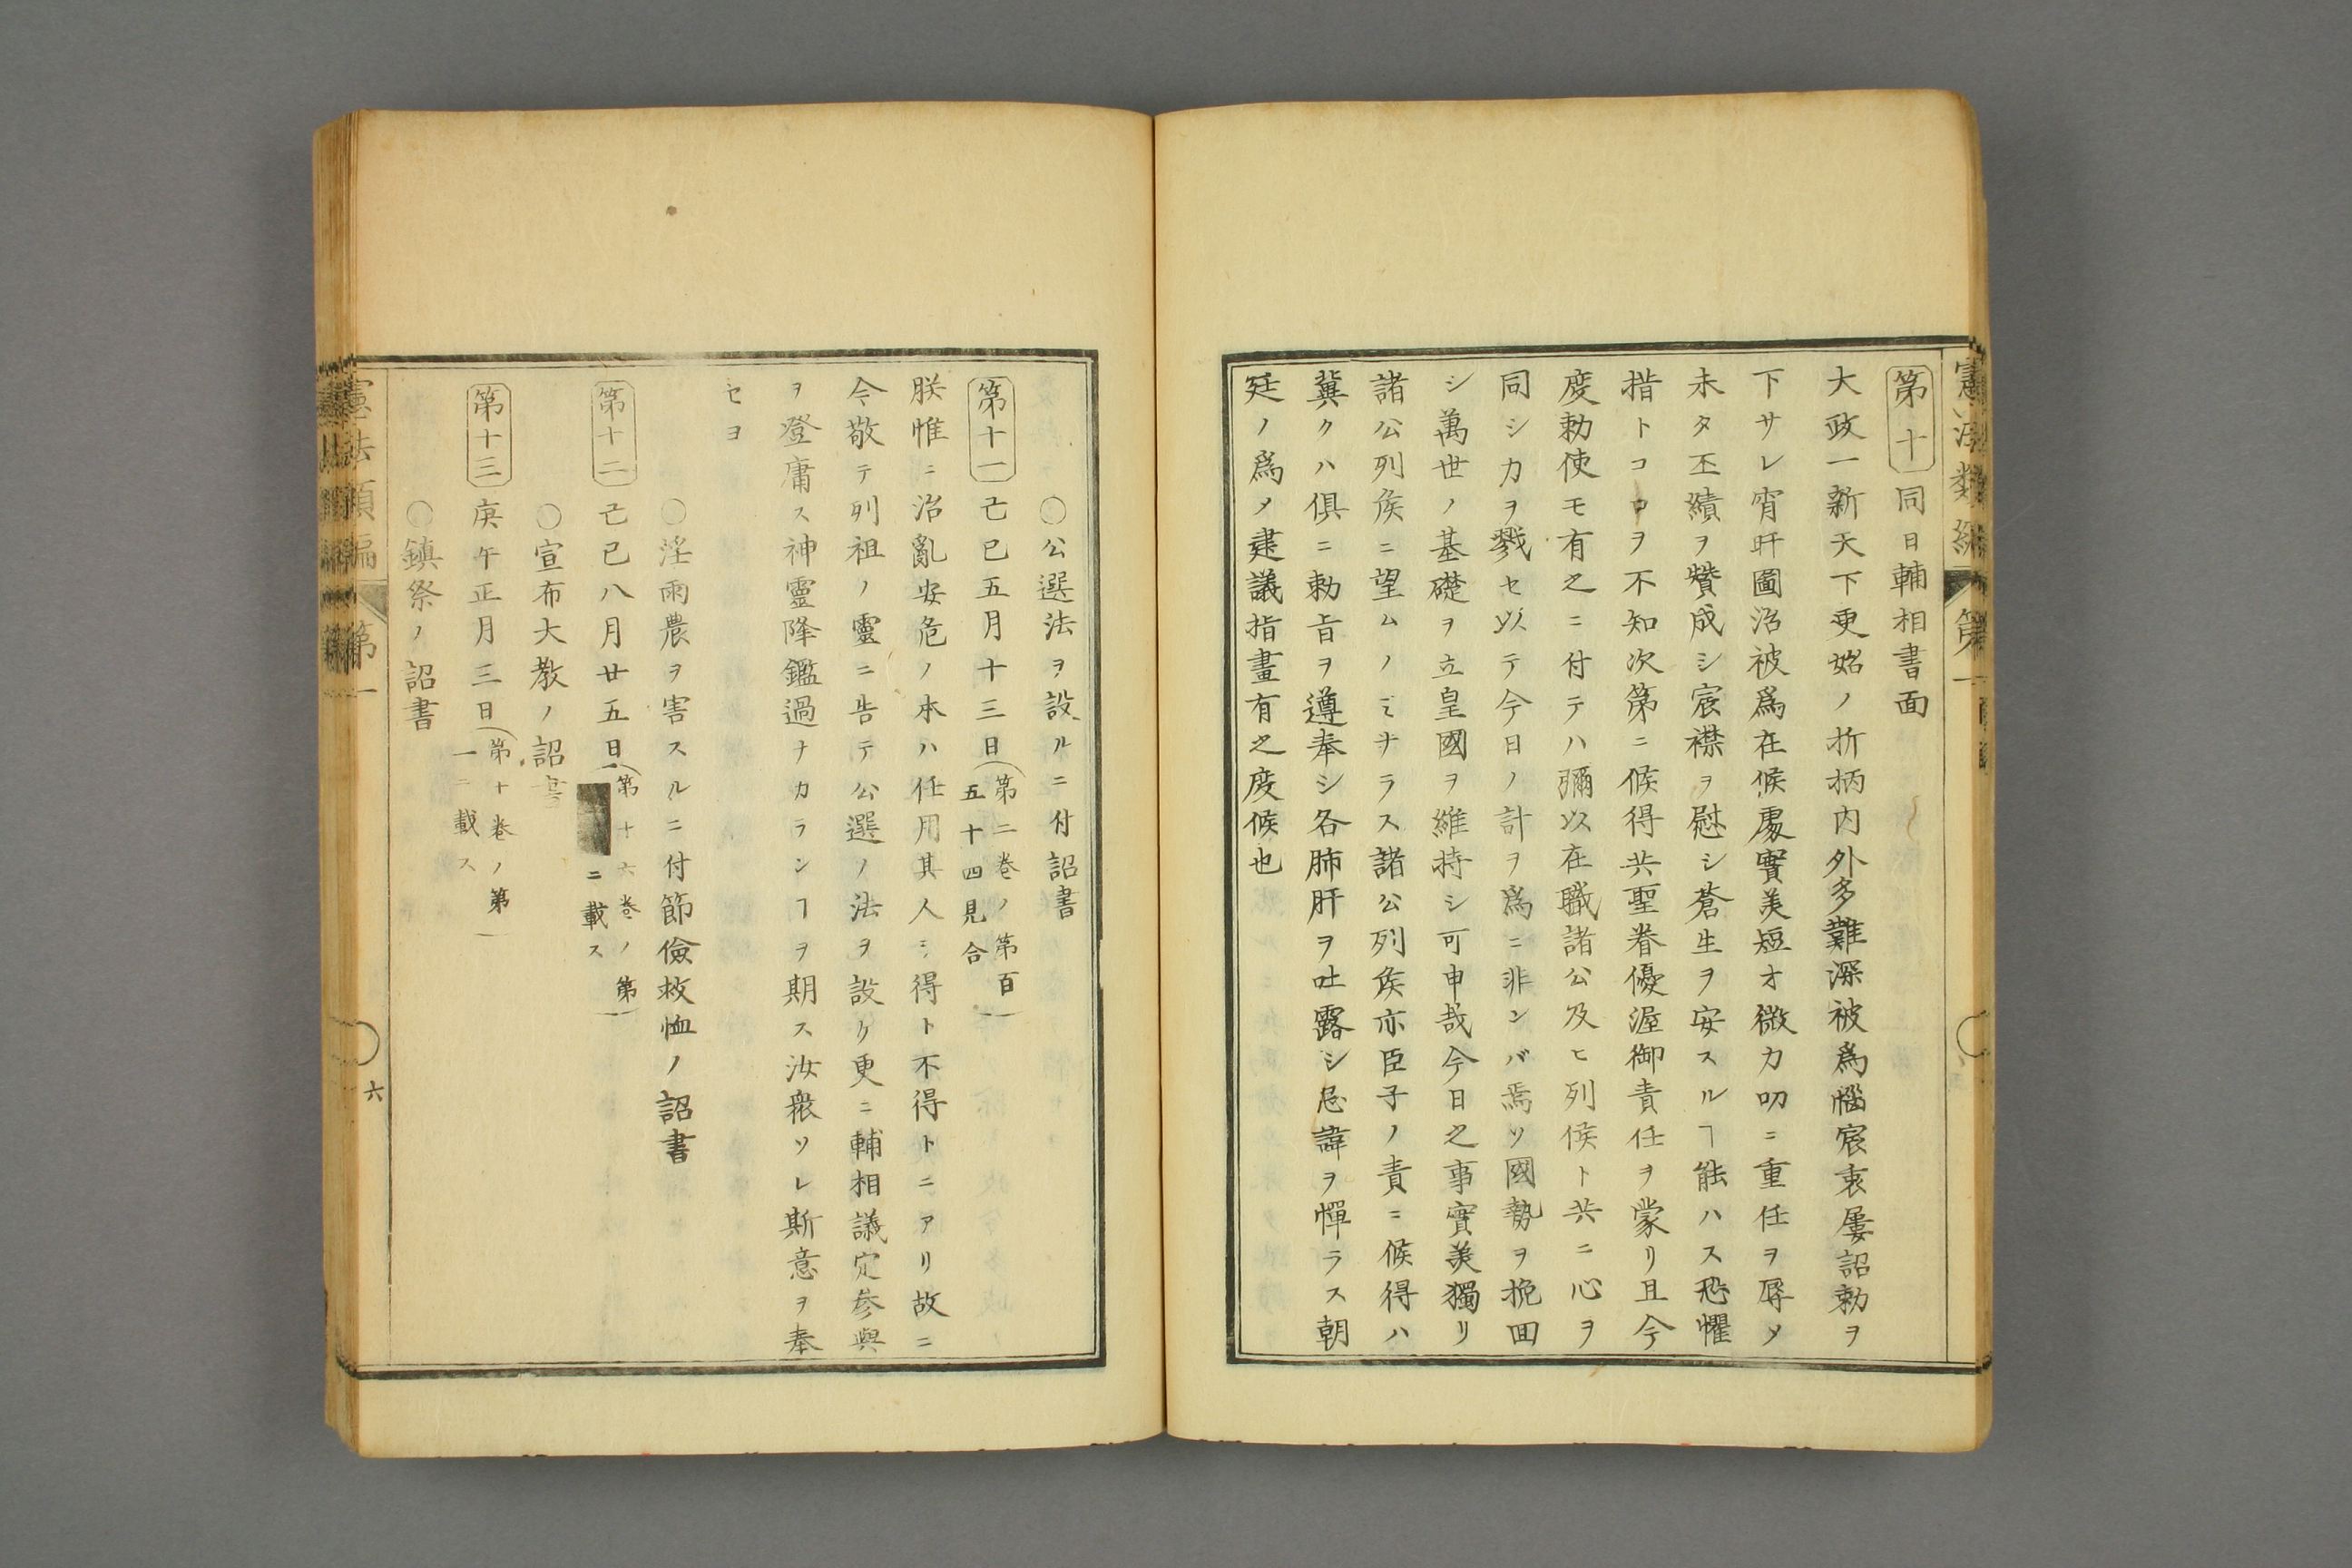 憲法類編 第一
第十 同日輔相書面
大政一新天下更始ノ折柄内外多難深被爲惱宸衷屢詔勅ヲ
下サレ宵旰圖治被爲在候處實美短才微力叨ニ重任ヲ辱メ
未タ丕績ヲ賛成シ宸襟ヲ慰シ蒼生ヲ安スルヿ能ハス恐懼
措トコロヲ不知次第ニ候得共聖眷優渥御責任ヲ蒙リ且今
度勅使モ有之ニ付テハ彌以在職諸公及ヒ列侯ト共ニ心ヲ
同シカヲ戮セ以テ今日ノ計ヲ爲ニ非ンバ焉ソ國勢ヲ挽回
シ萬世ノ基礎ヲ立皇國ヲ維持シ可申哉今日之事實美獨リ
諸公列侯ニ望ムノミナラス諸公列侯亦臣子ノ責ニ候得ハ
冀クハ倶ニ勅旨ヲ遵奉シ各肺肝ヲ吐露シ忌諱ヲ憚ラス朝
廷ノ爲メ建議指畫有之度候也
○公選法ヲ設ルニ付詔書
第十一 己巳五月十三日（第二卷ノ第百
五十四見合）
朕惟ニ治亂安危ノ本ハ任用其人ヲ得ト不得トニアリ故ニ
今敬テ列祖ノ靈ニ告テ公選ノ法ヲ設ケ更ニ輔相議定參與
ヲ登庸ス神靈降鑑過ナカランヿヲ期ス汝衆ソレ斯意ヲ奉
セヨ
○淫雨農ヲ害スルニ付節儉救恤ノ詔書
第十二 己巳八月廿五日（第十六卷ノ第
ニ載ス）
○宣布大教ノ詔書
第十三 庚午正月三日（第十卷ノ第
一ニ載ス）
○鎮祭ノ詔書
憲法類編 第一
六